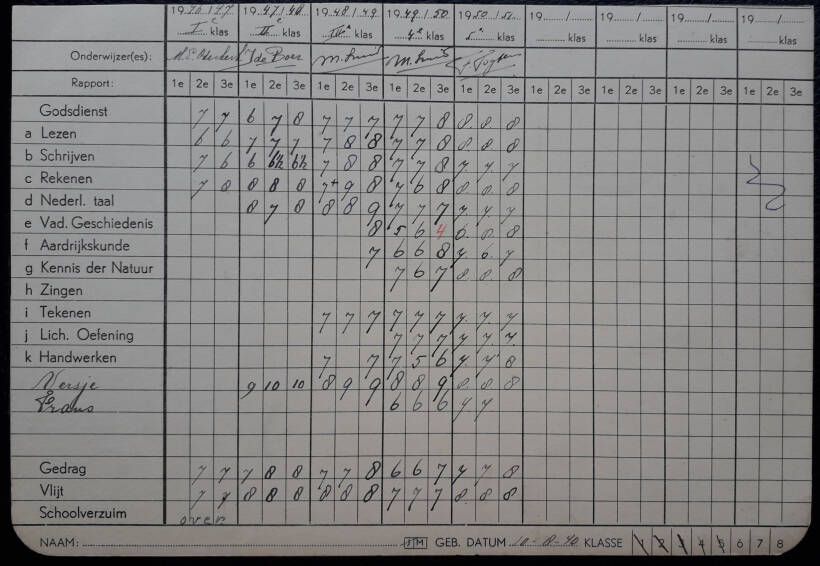 1946/47 1947/48 1948/49 1949/50 1950/51 19..../.... 19..../.... 19..../.... 19..../....
Ie klas IIe klas klas 4e klas 5e klas klas klas klas klas
Onderwijzer(es): J de Boer
Rapport: 1e 2e 3e 1e 2e 3e 1e 2e 3e 1e 2e 3e 1e 2e 3e 1e 2e 3e 1e 2e 3e 1e 2e 3e 1e 2e 3e
Godsdienst 7 7 6 7 8 7 7 7 7 7 8 8. 8. 8
a Lezen 6 6 7 7 7 7 8 8 7 7 8 8. 8. 8
b Schrijven 7 6 6 6½ 6½ 7 8 8 7 7 8 7. 7. 7
c Rekenen 7 8 8 8 8 7+ 9 8 7 6 8 8. 8. 8
d Nederl. taal 8 7 8 8 8 9 7 7 7 7. 7. 7
e Vad. Geschiedenis 8 5 6 4 6. 8. 8
f Aardrijkskunde 7 6 6 8 7. 6. 7
g Kennis der Natuur 7 6 7 8. 8. 8
h Zingen
i Tekenen 7 7 7 7 7 7 7. 7. 7
j Lich. Oefening 7 7 7 7. 7. 7.
k Handwerken 7 7 7 5 6 7. 7. 8
Versje 9 10 10 8 9 9 8 8 9 8. 8. 8
Frans 6 6 6 7 7
Gedrag 7 7 7 8 8 7 7 8 6 6 7 7 7 8
Vlijt 7 7 8 8 8 8 8 8 7 7 7 8. 8. 8
Schoolverzuim over
NAAM: J M GEB. DATUM 10-8-40 KLASSE 1 2 3 4 5 6 7 8